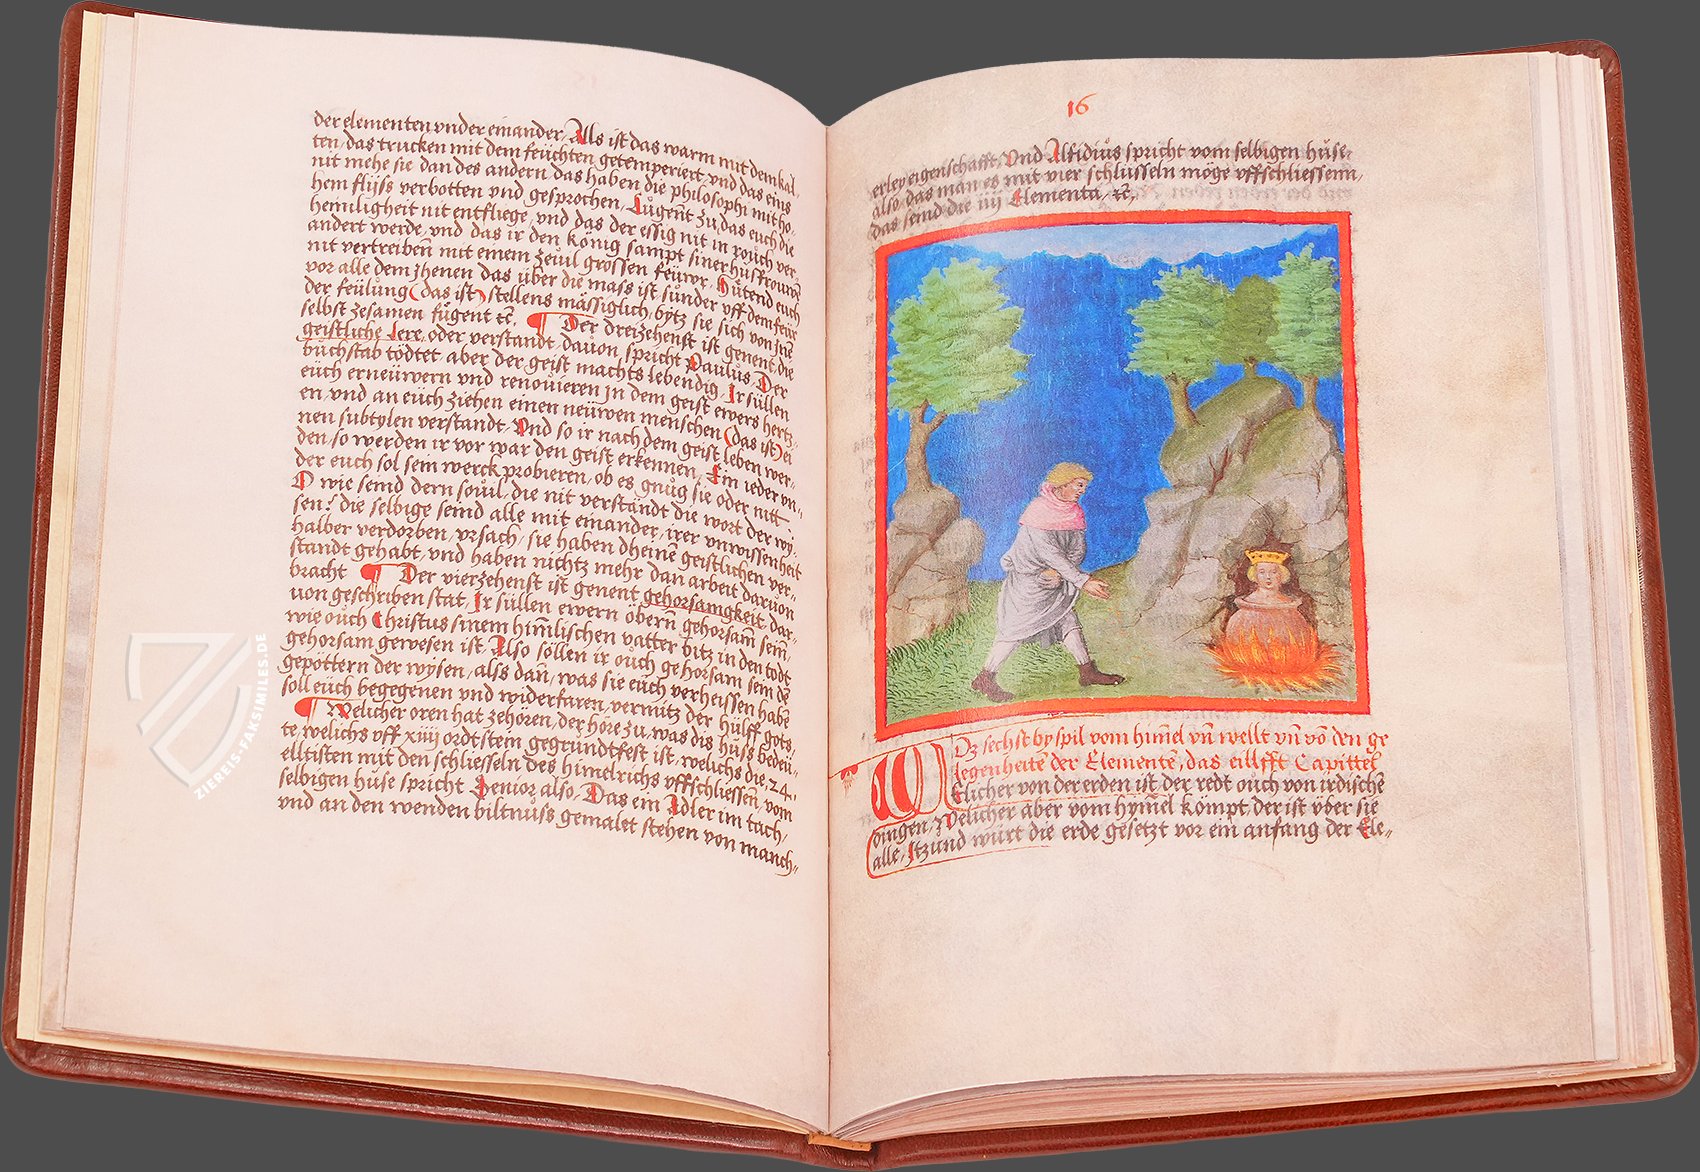 der elementen vnder einander, Als ist das warm mit dem kal„
ten, das trucken mit dem feüchten getemperiert, vnd das eins
nit mehe sie dan des andern, das haben die philosophi mit ho„
hem flyss verbotten vnd gesprochen, Lůgent zu, das euch die
hemiligheit nit entfliege, vnd das der essig nit in roůch ver„
andert werde, vnd das ir den König sampt siner hußfrouwē
nit vertreibeñ mit einem zeüil grossen feüwr, Hůtend euch
vor alle dem Jhenen das über die mass ist sůnder vff dem feůr
der feülung (das ist) stellens mässiglich, bytz sie sich von Jnē
selbst zesamen fügent etc. ¶ Der dreizehenst ist genent, die
geistliche lere, oder verstandt, dauon spricht Paulus, Der
büchstab tödtet aber der geist machts lebendig, Ir süllen
eüch erneüwern vnd renouieren Jn dem geist ewers hertz„
en, vnd an euch ziehen einen neüwen menschen (das ist) ei
nen subtylen verstandt, Vnd so ir nach dem geist leben wer„
den, so werden ir vor war den geist erkennen, Ein ieder vn„
der euch sol sein werck probieren, ob es gnůg sie oder nitt
O wie seind dern souil, die nit verständt die wort der wy„
sen? die selbige seind alle mit einander, irer vnwissenheit
halber verdorben, vrsach, sie haben dheinē geistlichen ver„
standt gehabt, vnd haben nichtz mehr dan arbeit daruon
bracht ¶ Der vierzehenst ist genent gehorsamgkeit dar„
uon geschriben stat, Ir süllen ewern öberñ gehorsam sein,
wie oůch Christus sinem himlischen vatter bitz in den todt
gehorsam gewesen ist, Also sollen ir oůch gehorsam sein dē
gepottern der wysen, alss dañ, was sie euch verheissen habē
soll euch begegenen vnd widerfaren, vermitz der hülff gots,
¶ Welicher oren hat zehören, der höre zu, was dis huss bedeü„
te, welichs vff xiiij ordtstein gegrundtfest ist, welichs die 24.
elltisten mit den schliesseln des himelrichs vffschliessen, vom
selbigen huse spricht Senior also, Das ein Adler im tach,
vnd an den wenden biltnůss gemalet stehen von manch„
16
erley eigenschafft, Vnd Alfidiůs spricht vom selbigen huse
also, das man es mit vier schlüsseln möge vffschliessenn,
das seind die iiij Elementa, etc.
DZ sechst byspil vom himel vñ wellt vñ võ den ge
legenheitē der Elementē, das eillfft Capittel
WElicher von der erden ist der redt oůch von irdischē
dingen, Welicher aber vom hymel kömpt, der ist über sie
alle, Itzund würt die erde gesetzt vor ein anfang der Ele„
ZIEREIS-FAKSIMILES.DE